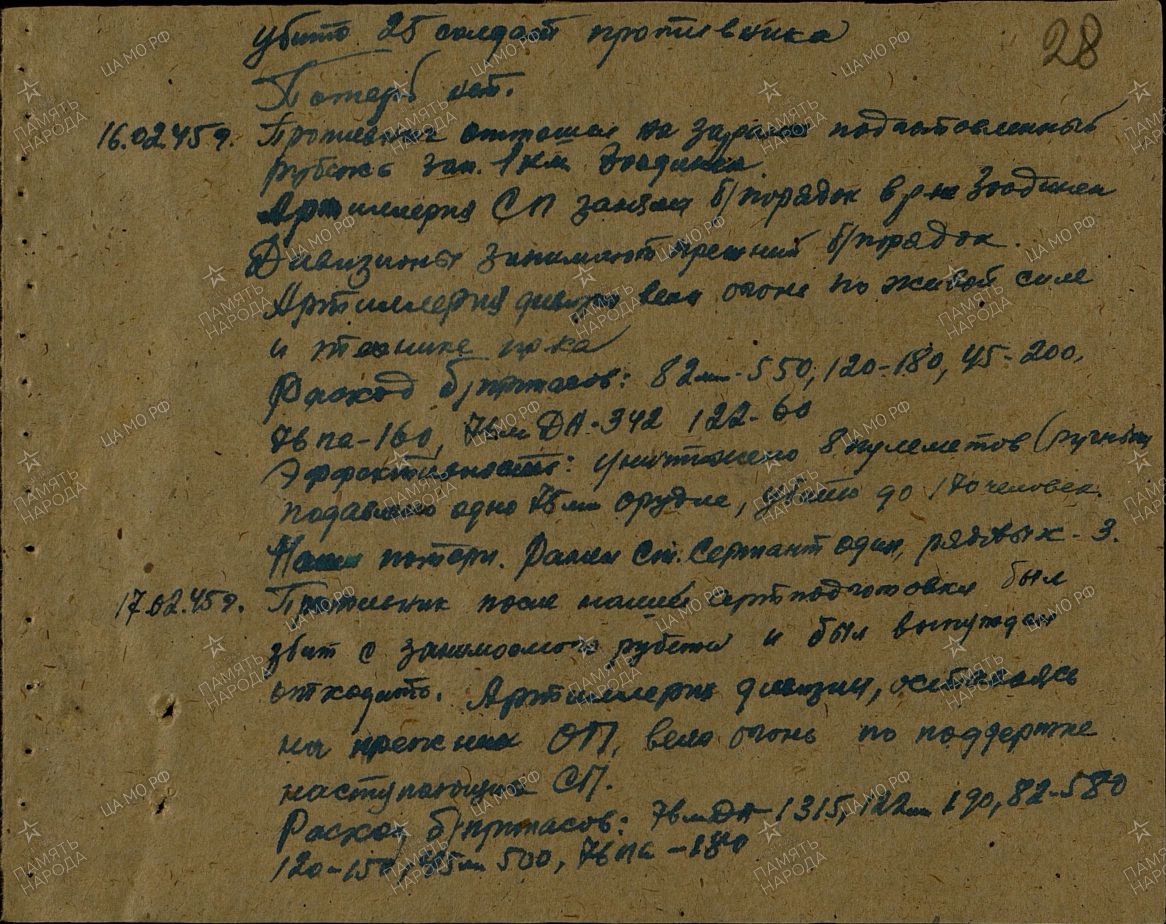 28
убито 25 солдат противника
Потерь нет.
16.02.45г. Противник отошел на заранее подготовленный
рубеж зап. 1 км
Артиллерия СП заняла б/порядок в р-не
Дивизионы занимают прежний б/порядок.
Артиллерия дивизии вела огонь по живой силе
и технике пр-ка
Расход б/припасов: 82мм-550, 120-180, 45-200,
76 па-160, 76мм ДА-342 122-60
Эффективность: уничтожено 8 пулеметов (ручных
подавлено одно 76мм орудие, убито до 170 человек.
Наши потери. Ранен Ст. Сержант один, рядовых-3.
17.02.45г. Противник после нашей артподготовки был
збит с занимаемого рубежа и был вынужден
отходить. Артиллерия дивизии, оставаясь
на прежних ОП, вела огонь по поддержке
наступающих СП.
Расход б/припасов: 76мм ДА-1315, 122мм 190, 82-580
120-150, 45мм 500, 76 па-180
ПАМЯТЬ НАРОДА
ЦА МО РФ